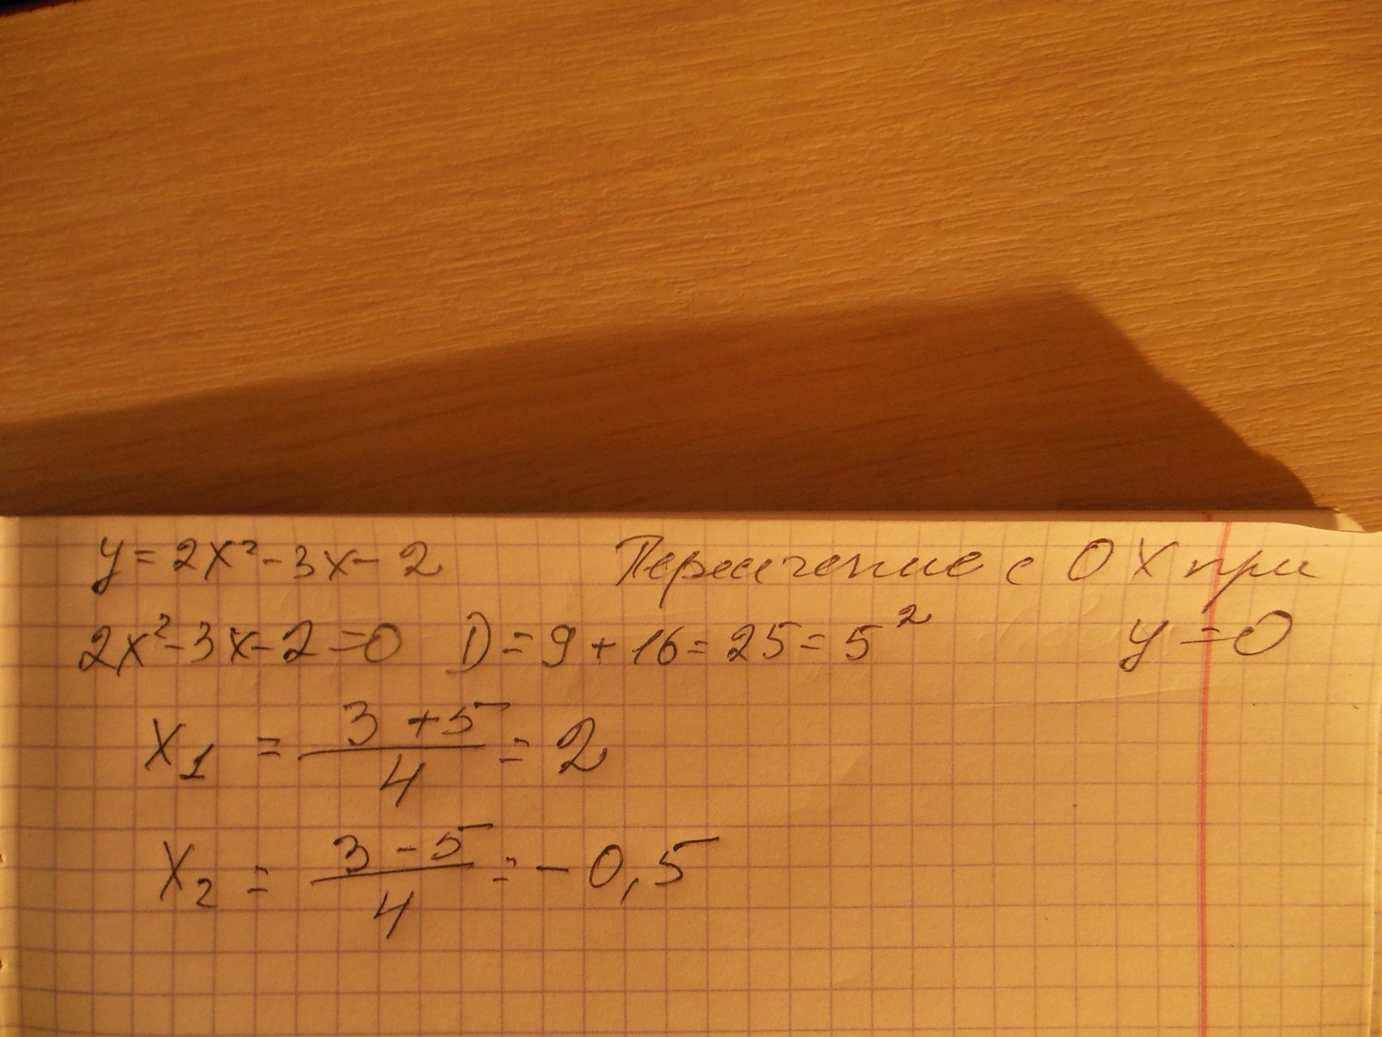 y = 2x² - 3x - 2 Пересечение с OX при
2x² - 3x - 2 = 0 D = 9 + 16 = 25 = 5² y = 0
x₁ = (3 + 5)/4 = 2
x₂ = (3 - 5)/4 = -0,5